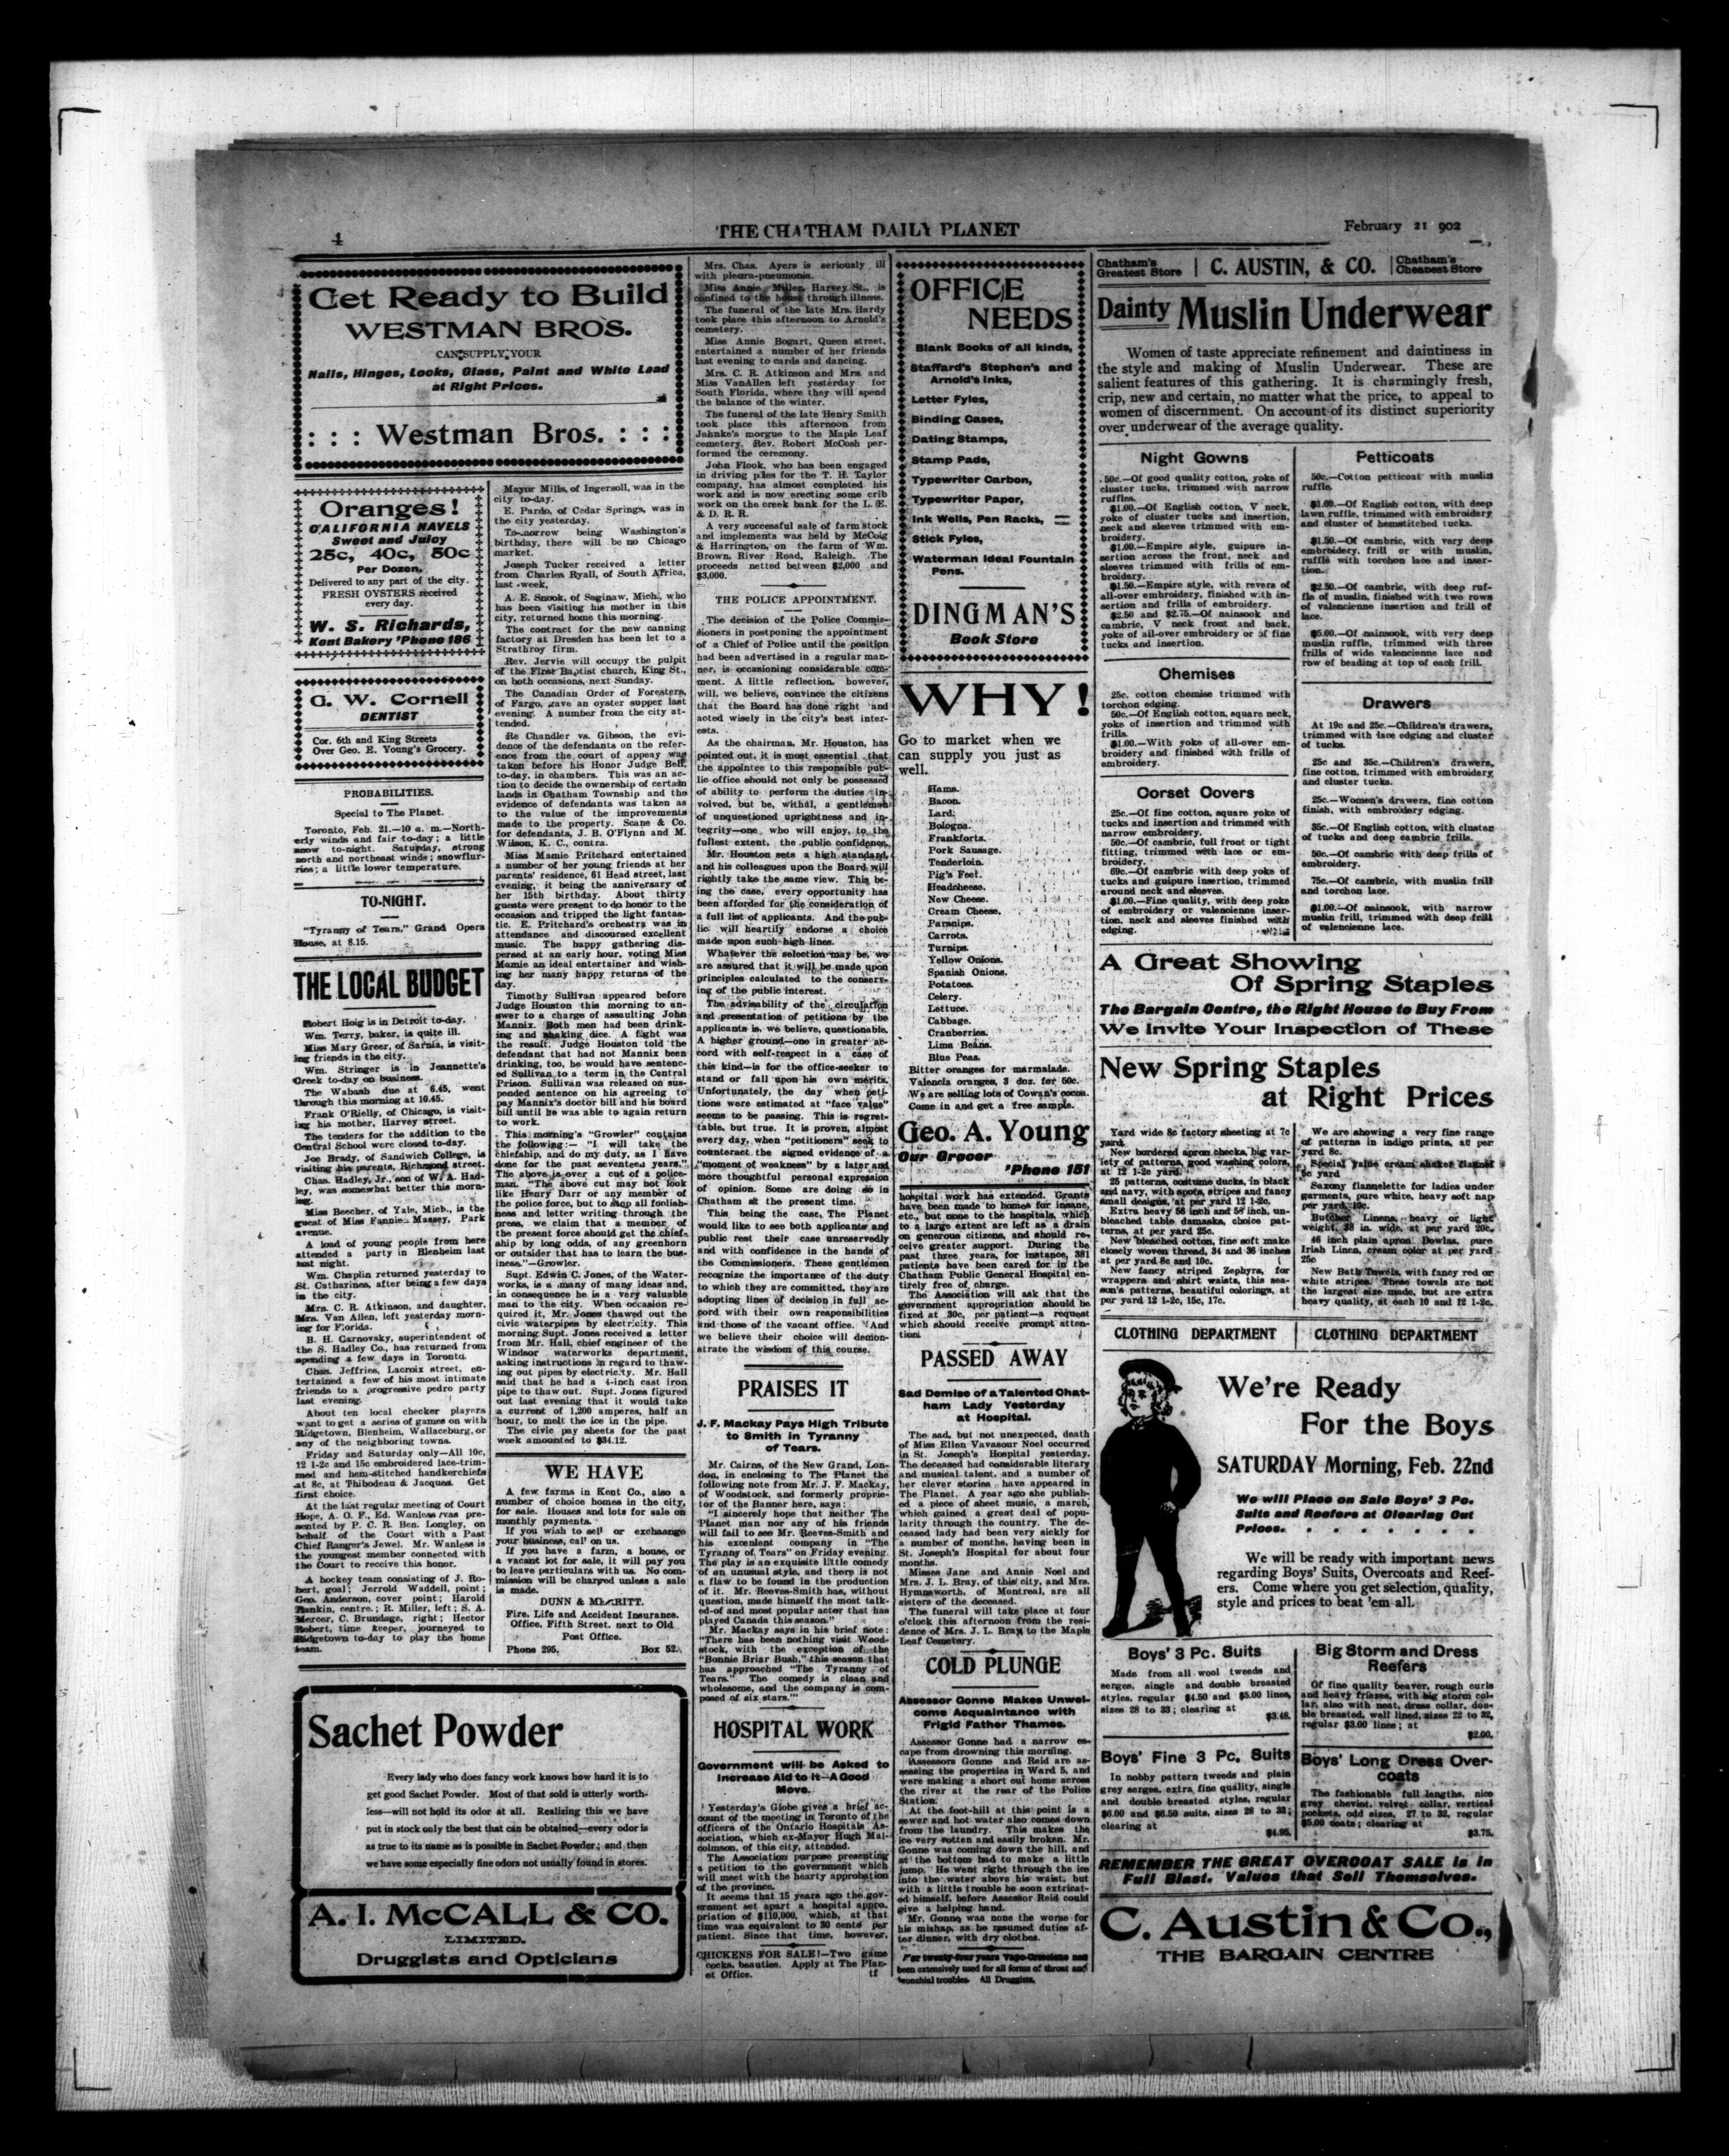 4
THE CHATHAM DAILY PLANET
February 21 902
Get Ready to Build
WESTMAN BROS.
CAN SUPPLY YOUR
Nails, Hinges, Locks, Glass, Paint and White Lead
at Right Prices.
: : : Westman Bros. : : :
Oranges!
CALIFORNIA NAVELS
Sweet and Juicy
25c, 40c, 50c
Per Dozen.
Delivered to any part of the city.
FRESH OYSTERS received
every day.
W. S. Richards,
Kent Bakery 'Phone 186
G. W. Cornell
DENTIST
Cor. 6th and King Streets
Over Geo. E. Young's Grocery.
PROBABILITIES.
Special to The Planet.
Toronto, Feb. 21.—10 a. m.—North-
erly winds and fair to-day; a little
snow to-night. Saturday, strong
north and northeast winds; snowflur-
ries; a little lower temperature.
TO-NIGHT.
"Tyranny of Tears," Grand Opera
House, at 8.15.
THE LOCAL BUDGET
Robert Hoig is in Detroit to-day.
Wm. Terry, baker, is quite ill.
Miss Mary Greer, of Sarnia, is visit-
ing friends in the city.
Wm. Stringer is in Jeannette's
Creek to-day on business.
The Wabash due at 6.45, went
through this morning at 10.45.
Frank O'Rielly, of Chicago, is visit-
ing his mother, Harvey street.
The tenders for the addition to the
Central School were closed to-day.
Joe Brady, of Sandwich College, is
visiting his parents, Richmond street.
Chas. Hadley, Jr., son of W. A. Had-
ley, was somewhat better this morn-
ing.
Miss Beecher, of Yale, Mich., is the
guest of Miss Fannie Massey, Park
avenue.
A load of young people from here
attended a party in Blenheim last
night.
Wm. Chaplin returned yesterday to
St. Catharines, after being a few days
in the city.
Mrs. C. R. Atkinson, and daughter,
Mrs. Van Allen, left yesterday morn-
ing for Florida.
B. H. Carnovsky, superintendent of
the S. Hadley Co., has returned from
spending a few days in Toronto.
Chas. Jeffries, Lacroix street, en-
tertained a few of his most intimate
friends to a progressive pedro party
last evening.
About ten local checker players
want to get a series of games on with
Ridgetown, Blenheim, Wallaceburg, or
any of the neighboring towns.
Friday and Saturday only—All 10c,
12 1-2c and 15c embroidered lace-trim-
med and hem-stitched handkerchiefs
at 8c, at Thibodeau & Jacques. Get
first choice.
At the last regular meeting of Court
Hope, A. O. F., Ed. Wanless was pre-
sented by P. C. R. Ben. Longley, on
behalf of the Court with a Past
Chief Ranger's Jewel. Mr. Wanless is
the youngest member connected with
the Court to receive this honor.
A hockey team consisting of J. Ro-
bert, goal; Jerrold Waddell, point;
Geo. Anderson, cover point; Harold
Rankin, centre; R. Miller, left; S. A.
Mercer, C. Brundage, right; Hector
Robert, time keeper, journeyed to
Ridgetown to-day to play the home
team.
Mayor Mills, of Ingersoll, was in the
city to-day.
E. Pardo, of Cedar Springs, was in
the city yesterday.
To-morrow being Washington's
birthday, there will be no Chicago
market.
Joseph Tucker received a letter
from Charles Ryall, of South Africa,
last week.
A. E. Snook, of Saginaw, Mich., who
has been visiting his mother in this
city, returned home this morning.
The contract for the new canning
factory at Dresden has been let to a
Strathroy firm.
Rev. Jervie will occupy the pulpit
of the First Baptist church, King St.,
on both occasions, next Sunday.
The Canadian Order of Foresters,
of Fargo, gave an oyster supper last
evening. A number from the city at-
tended.
Re Chandler vs. Gibson, the evi-
dence of the defendants on the refer-
ence from the court of appeay was
taken before his Honor Judge Bell,
to-day, in chambers. This was an ac-
tion to decide the ownership of certain
lands in Chatham Township and the
evidence of defendants was taken as
to the value of the improvements
made to the property. Scane & Co.
for defendants, J. B. O'Flynn and M.
Wilson, K. C., contra.
Miss Mamie Pritchard entertained
a number of her young friends at her
parents' residence, 61 Head street, last
evening, it being the anniversary of
her 15th birthday. About thirty
guests were present to do honor to the
occasion and tripped the light fantas-
tic. E. Pritchard's orchestra was in
attendance and discoursed excellent
music. The happy gathering dis-
persed at an early hour, voting Miss
Mamie an ideal entertainer and wish-
ing her many happy returns of the
day.
Timothy Sullivan appeared before
Judge Houston this morning to an-
swer to a charge of assaulting John
Mannix. Both men had been drink-
ing and shaking dice. A fight was
the result. Judge Houston told the
defendant that had not Mannix been
drinking, too, he would have sentenc-
ed Sullivan to a term in the Central
Prison. Sullivan was released on sus-
pended sentence on his agreeing to
pay Mannix's doctor bill and his board
bill until he was able to again return
to work.
This morning's "Growler" contains
the following:— "I will take the
chiefship, and do my duty, as I have
done for the past seventeen years."
The above is over a cut of a police-
man. "The above cut may not look
like Henry Darr or any member of
the police force, but to stop all foolish-
ness and letter writing through the
press, we claim that a member of
the present force should get the chief-
ship by long odds, of any greenhorn
or outsider that has to learn the bus-
iness."—Growler.
Supt. Edwin C. Jones, of the Water-
works, is a many of many ideas and,
in consequence he is a very valuable
man to the city. When occasion re-
quired it, Mr. Jones thawed out the
civic waterpipes by electricity. This
morning Supt. Jones received a letter
from Mr. Hall, chief engineer of the
Windsor waterworks department,
asking instructions in regard to thaw-
ing out pipes by electricity. Mr. Hall
said that he had a 4-inch cast iron
pipe to thaw out. Supt. Jones figured
out last evening that it would take
a current of 1,200 amperes, half an
hour, to melt the ice in the pipe.
The civic pay sheets for the past
week amounted to $34.12.
WE HAVE
A few farms in Kent Co., also a
number of choice homes in the city,
for sale. Houses and lots for sale on
monthly payments.
If you wish to sell or exchange
your business, call on us.
If you have a farm, a house, or
a vacant lot for sale, it will pay you
to leave particulars with us. No com-
mission will be charged unless a sale
is made.
DUNN & MERRITT.
Fire, Life and Accident Insurance.
Office, Fifth Street, next to Old
Post Office.
Phone 295. Box 52.
Sachet Powder
Every lady who does fancy work knows how hard it is to
get good Sachet Powder. Most of that sold is utterly worth-
less—will not hold its odor at all. Realizing this we have
put in stock only the best that can be obtained—every odor is
as true to its name as is possible in Sachet Powder; and then
we have some especially fine odors not usually found in stores.
A. I. McCALL & CO.
LIMITED.
Druggists and Opticians
Mrs. Chas. Ayers is seriously ill
with pleura-pneumonia.
Miss Annie Miller, Harvey St., is
confined to the house through illness.
The funeral of the late Mrs. Hardy
took place this afternoon to Arnold's
cemetery.
Miss Annie Bogart, Queen street,
entertained a number of her friends
last evening to cards and dancing.
Mrs. C. R. Atkinson and Mrs. and
Miss VanAllen left yesterday for
South Florida, where they will spend
the balance of the winter.
The funeral of the late Henry Smith
took place this afternoon from
Jahnke's morgue to the Maple Leaf
cemetery. Rev. Robert McCosh per-
formed the ceremony.
John Flook, who has been engaged
in driving piles for the T. H. Taylor
company, has almost completed his
work and is now erecting some crib
work on the creek bank for the L. E.
& D. R. R.
A very successful sale of farm stock
and implements was held by McCoig
& Harrington, on the farm of Wm.
Brown, River Road, Raleigh. The
proceeds netted between $2,000 and
$3,000.
THE POLICE APPOINTMENT.
The decision of the Police Commis-
sioners in postponing the appointment
of a Chief of Police until the position
had been advertised in a regular man-
ner, is occasioning considerable com-
ment. A little reflection, however,
will, we believe, convince the citizens
that the Board has done right and
acted wisely in the city's best inter-
ests.
As the chairman, Mr. Houston, has
pointed out, it is most essential that
the appointee to this responsible pub-
lic office should not only be possessed
of ability to perform the duties in-
volved, but be, withal, a gentleman
of unquestioned uprightness and in-
tegrity—one who will enjoy, to the
fullest extent, the public confidence.
Mr. Houston sets a high standard,
and his colleagues upon the Board will
rightly take the same view. This be-
ing the case, every opportunity has
been afforded for the consideration of
a full list of applicants. And the pub-
lic will heartily endorse a choice
made upon such high lines.
Whatever the selection may be, we
are assured that it will be made upon
principles calculated to the conserv-
ing of the public interest.
The advisability of the circulation
and presentation of petitions by the
applicants is, we believe, questionable.
A higher ground—one in greater ac-
cord with self-respect in a case of
this kind—is for the office-seeker to
stand or fall upon his own merits.
Unfortunately, the day when peti-
tions were estimated at "face value"
seems to be passing. This is regret-
table, but true. It is proven, almost
every day, when "petitioners" seek to
counteract the signed evidence of a
"moment of weakness" by a later and
more thoughtful personal expression
of opinion. Some are doing so in
Chatham at the present time.
This being the case, The Planet
would like to see both applicants and
public rest their case unreservedly
and with confidence in the hands of
the Commissioners. These gentlemen
recognize the importance of the duty
to which they are committed, they are
adopting lines of decision in full ac-
cord with their own responsibilities
and those of the vacant office. And
we believe their choice will demon-
strate the wisdom of this course.
PRAISES IT
J. F. Mackay Pays High Tribute
to Smith in Tyranny
of Tears.
Mr. Cairns, of the New Grand, Lon-
don, in enclosing to The Planet the
following note from Mr. J. F. Mackay,
of Woodstock, and formerly proprie-
tor of the Banner here, says:
"I sincerely hope that neither The
Planet man nor any of his friends
will fail to see Mr. Reeves-Smith and
his excellent company in "The
Tyranny of Tears" on Friday evening.
The play is an exquisite little comedy
of an unusual style, and there is not
a flaw to be found in the production
of it. Mr. Reeves-Smith has, without
question, made himself the most talk-
ed-of and most popular actor that has
played Canada this season."
Mr. Mackay says in his brief note:
"There has been nothing visit Wood-
stock, with the exception of the
"Bonnie Briar Bush," this season that
has approached "The Tyranny of
Tears." The comedy is clean and
wholesome, and the company is com-
posed of six stars."
HOSPITAL WORK
Government will be Asked to
Increase Aid to it—A Good
Move.
Yesterday's Globe gives a brief ac-
count of the meeting in Toronto of the
officers of the Ontario Hospitals As-
sociation, which ex-Mayor Hugh Mal-
colmson, of this city, attended.
The Association purpose presenting
a petition to the government which
will meet with the hearty approbation
of the province.
It seems that 15 years ago the gov-
ernment set apart a hospital appro-
priation of $110,000, which, at that
time was equivalent to 30 cents per
patient. Since that time, however,
CHICKENS FOR SALE!—Two game
cocks, beauties. Apply at The Plan-
et Office. tf
OFFICE
NEEDS
Blank Books of all kinds,
Staffard's Stephen's and
Arnold's Inks,
Letter Fyles,
Binding Cases,
Dating Stamps,
Stamp Pads,
Typewriter Carbon,
Typewriter Paper,
Ink Wells, Pen Racks,
Stick Fyles,
Waterman Ideal Fountain
Pens.
DINGMAN'S
Book Store
WHY!
Go to market when we
can supply you just as
well.
Hams.
Bacon.
Lard.
Bologna.
Frankforts.
Pork Sausage.
Tenderloin.
Pig's Feet.
Headcheese.
New Cheese.
Cream Cheese.
Parsnips.
Carrots.
Turnips.
Yellow Onions.
Spanish Onions.
Potatoes.
Celery.
Lettuce.
Cabbage.
Cranberries.
Lima Beans.
Blue Peas.
Bitter oranges for marmalade.
Valencia oranges, 3 doz. for 50c.
We are selling lots of Cowan's cocoa.
Come in and get a free sample.
Geo. A. Young
Our Grocer
'Phone 151
hospital work has extended. Grants
have been made to homes for insane,
etc., but none to the hospitals, which
to a large extent are left as a drain
on generous citizens, and should re-
ceive greater support. During the
past three years, for instance, 381
patients have been cared for in the
Chatham Public General Hospital en-
tirely free of charge.
The Association will ask that the
government appropriation should be
fixed at 30c. per patient—a request
which should receive prompt atten-
tion.
PASSED AWAY
Sad Demise of a Talented Chat-
ham Lady Yesterday
at Hospital.
The sad, but not unexpected, death
of Miss Ellen Vavasour Noel occurred
in St. Joseph's Hospital yesterday.
The deceased had considerable literary
and musical talent, and a number of
her clever stories have appeared in
The Planet. A year ago she publish-
ed a piece of sheet music, a march,
which gained a great deal of popu-
larity through the country. The de-
ceased lady had been very sickly for
a number of months, having been in
St. Joseph's Hospital for about four
months.
Misses Jane and Annie Noel and
Mrs. J. L. Bray, of this city, and Mrs.
Hymnsworth, of Montreal, are all
sisters of the deceased.
The funeral will take place at four
o'clock this afternoon from the resi-
dence of Mrs. J. L. Bray to the Maple
Leaf Cemetery.
COLD PLUNGE
Assessor Gonne Makes Unwel-
come Acquaintance with
Frigid Father Thames.
Assessor Gonne had a narrow es-
cape from drowning this morning.
Assessors Gonne and Reid are as-
sessing the properties in Ward 5, and
were making a short cut home across
the river at the rear of the Police
Station.
At the foot-hill at this point is a
sewer and hot water also comes down
from the laundry. This makes the
ice very rotten and easily broken. Mr.
Gonne was coming down the hill, and
at the bottom had to make a little
jump. He went right through the ice
into the water above his waist, but
with a little trouble he soon extricat-
ed himself, before Assessor Reid could
give a helping hand.
Mr. Gonne was none the worse for
his mishap, as he resumed duties af-
ter dinner, with dry clothes.
For twenty-four years Vapo-Cresolene has
been extensively used for all forms of throat and
bronchial troubles. All Druggists.
Chatham's
Greatest Store
C. AUSTIN, & CO.
Chatham's
Cheapest Store
Dainty Muslin Underwear
Women of taste appreciate refinement and daintiness in
the style and making of Muslin Underwear. These are
salient features of this gathering. It is charmingly fresh,
crip, new and certain, no matter what the price, to appeal to
women of discernment. On account of its distinct superiority
over underwear of the average quality.
Night Gowns
50c.—Of good quality cotton, yoke of
cluster tucks, trimmed with narrow
ruffles.
$1.00.—Of English cotton, V neck,
yoke of cluster tucks and insertion,
neck and sleeves trimmed with em-
broidery.
$1.00.—Empire style, guipure in-
sertion across the front, neck and
sleeves trimmed with frills of em-
broidery.
$1.50.—Empire style, with revers of
all-over embroidery, finished with in-
sertion and frills of embroidery.
$2.50 and $2.75.—Of nainsook and
cambric, V neck front and back,
yoke of all-over embroidery or of fine
tucks and insertion.
Chemises
25c. cotton chemise trimmed with
torchon edging.
50c.—Of English cotton, square neck,
yoke of insertion and trimmed with
frills.
$1.00.—With yoke of all-over em-
broidery and finished with frills of
embroidery.
Corset Covers
25c.—Of fine cotton, square yoke of
tucks and insertion and trimmed with
narrow embroidery.
50c.—Of cambric, full front or tight
fitting, trimmed with lace or em-
broidery.
69c.—Of cambric with deep yoke of
tucks and guipure insertion, trimmed
around neck and sleeves.
$1.00.—Fine quality, with deep yoke
of embroidery or valencienne inser-
tion, neck and sleeves finished with
edging.
Petticoats
50c.—Cotton petticoat with muslin
ruffle.
$1.00.—Of English cotton, with deep
lawn ruffle, trimmed with embroidery
and cluster of hemstitched tucks.
$1.50.—Of cambric, with very deep
embroidery, frill or with muslin,
ruffle with torchon lace and inser-
tion.
$2.50.—Of cambric, with deep ruf-
fle of muslin, finished with two rows
of valencienne insertion and frill of
lace.
$5.00.—Of nainsook, with very deep
muslin ruffle, trimmed with three
frills of wide valencienne lace and
row of beading at top of each frill.
Drawers
At 19c and 25c.—Children's drawers,
trimmed with lace edging and cluster
of tucks.
25c and 35c.—Children's drawers,
fine cotton, trimmed with embroidery
and cluster tucks.
25c.—Women's drawers, fine cotton
finish, with embroidery edging.
35c.—Of English cotton, with cluster
of tucks and deep cambric frills.
50c.—Of cambric with deep frills of
embroidery.
75c.—Of cambric, with muslin frill
and torchon lace.
$1.00.—Of nainsook, with narrow
muslin frill, trimmed with deep frill
of valencienne lace.
A Great Showing
Of Spring Staples
The Bargain Centre, the Right House to Buy From
We Invite Your Inspection of These
New Spring Staples
at Right Prices
Yard wide 8c factory sheeting at 7c
yard.
New bordered apron checks, big var-
iety of patterns, good washing colors,
at 12 1-2c yard.
25 patterns, costume ducks, in black
and navy, with spots, stripes and fancy
small designs, at per yard 12 1-2c.
Extra heavy 56 inch and 58 inch, un-
bleached table damasks, choice pat-
terns, at per yard 25c.
New bleached cotton, fine soft make
closely woven thread, 34 and 36 inches
at per yard 8c and 10c.
New fancy striped Zephyrs, for
wrappers and shirt waists, this sea-
son's patterns, beautiful colorings, at
per yard 12 1-2c, 15c, 17c.
We are showing a very fine range
of patterns in indigo prints, at per
yard 8c.
Special value cream shaker flannel
5c yard.
Saxony flannelette for ladies under
garments, pure white, heavy soft nap
per yard 10c.
Butcher Linens, heavy or light
weight, 38 in. wide, at per yard 20c.
46 inch plain apron Dowlas, pure
Irish Linen, cream color at per yard
25c
New Bath Towels, with fancy red or
white stripes. These towels are not
the largest size made, but are extra
heavy quality, at each 10 and 12 1-2c.
CLOTHING DEPARTMENT
CLOTHING DEPARTMENT
We're Ready
For the Boys
SATURDAY Morning, Feb. 22nd
We will Place on Sale Boys' 3 Pc.
Suits and Reefers at Clearing Out
Prices. . . . . . .
We will be ready with important news
regarding Boys' Suits, Overcoats and Reef-
ers. Come where you get selection, quality,
style and prices to beat 'em all.
Boys' 3 Pc. Suits
Made from all wool tweeds and
serges, single and double breasted
styles, regular $4.50 and $5.00 lines,
sizes 28 to 33; clearing at
$3.48.
Big Storm and Dress
Reefers
Of fine quality beaver, rough curls
and heavy friezes, with big storm col-
lar, also with neat, dress collar, dou-
ble breasted, well lined, sizes 22 to 32,
regular $3.00 lines; at
$2.00.
Boys' Fine 3 Pc. Suits
In nobby pattern tweeds and plain
grey serges, extra fine quality, single
and double breasted styles, regular
$6.00 and $6.50 suits, sizes 28 to 33;
clearing at
$4.95.
Boys' Long Dress Over-
coats
The fashionable full lengths, nice
grey cheviot, velvet collar, vertical
pockets, odd sizes, 27 to 32, regular
$5.00 coats; clearing at
$3.75.
REMEMBER THE GREAT OVERCOAT SALE is in
Full Blast. Values that Sell Themselves.
C. Austin & Co.,
THE BARGAIN CENTRE